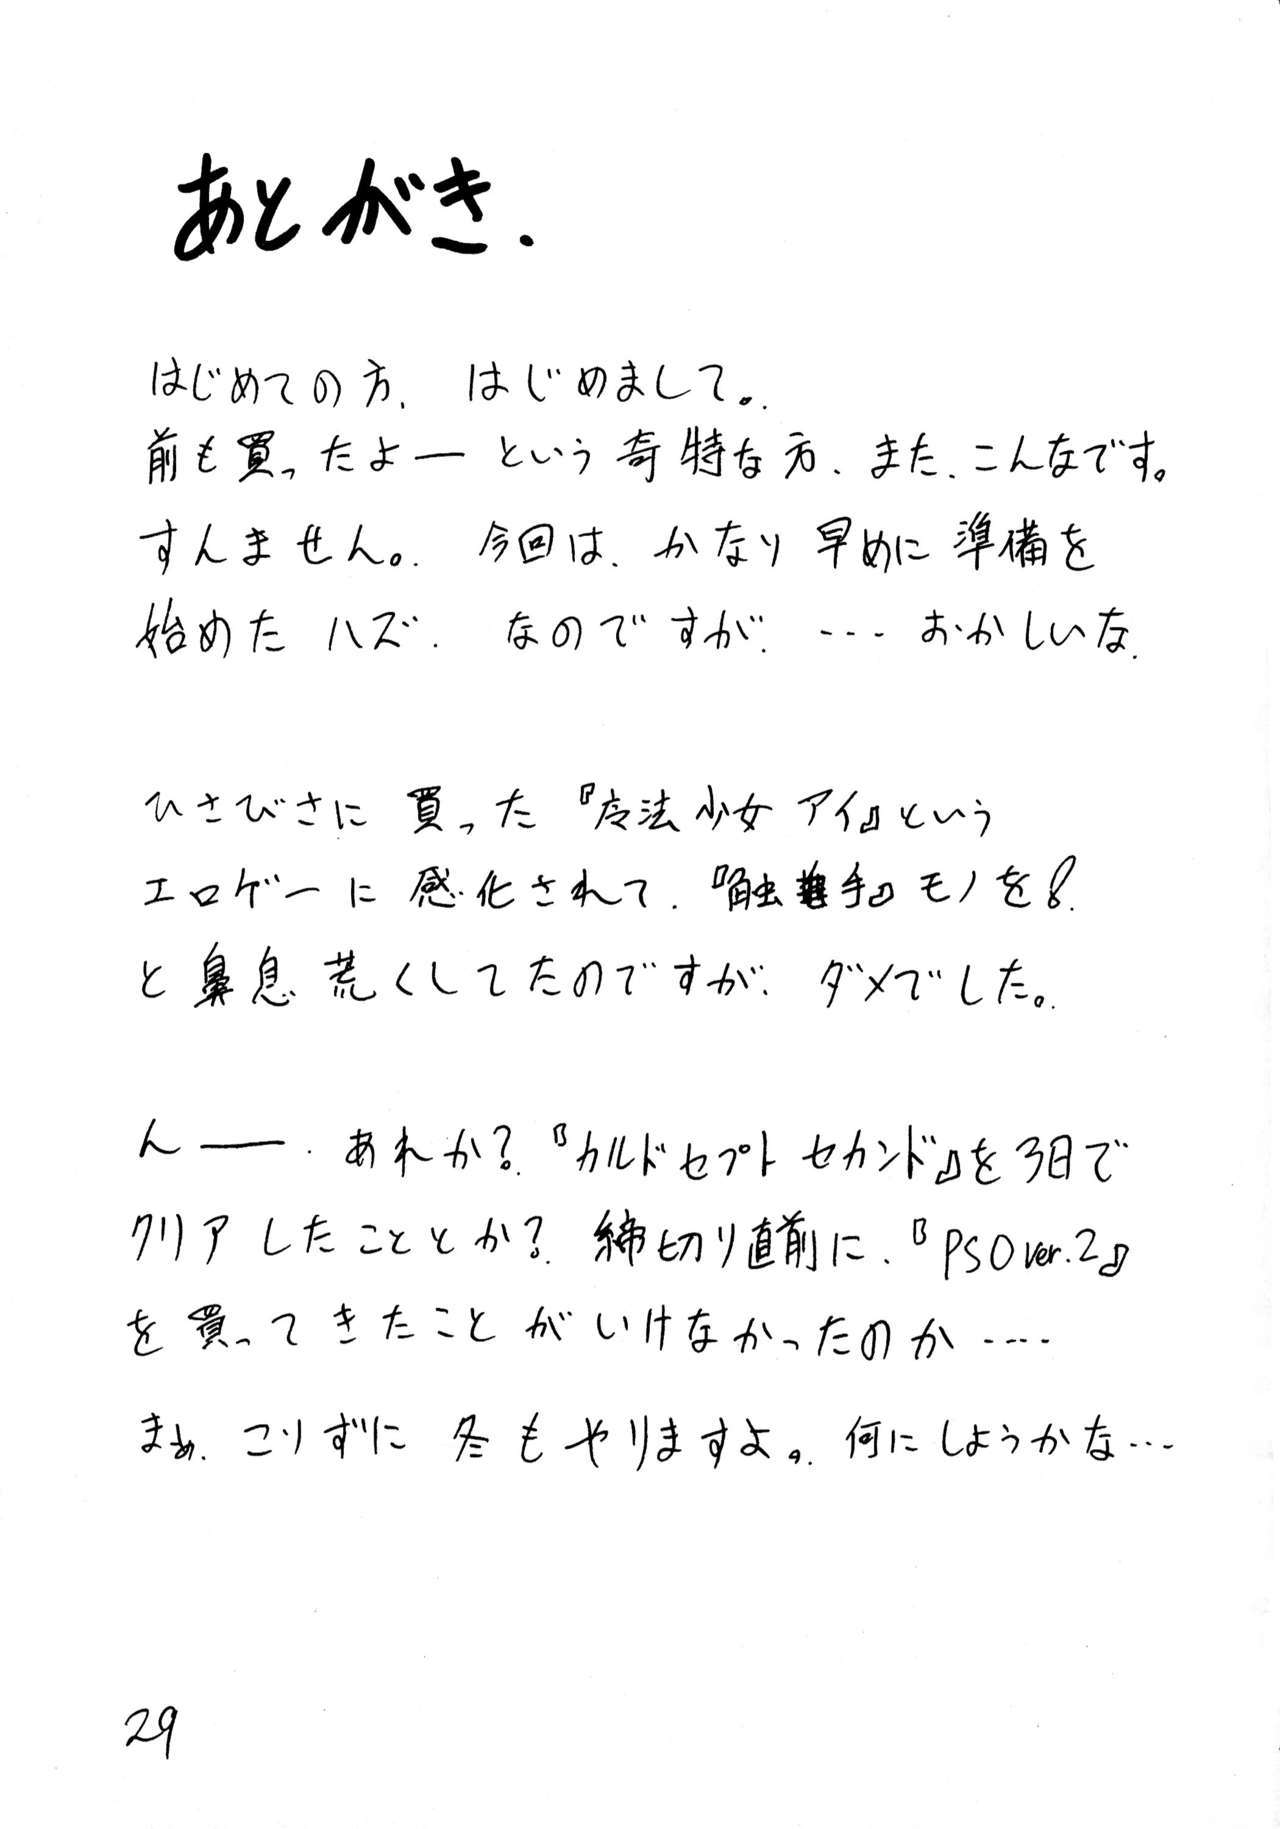 あとがき.
はじめての方、はじめまして。
前も買ったよーという奇特な方、また、こんなです。
すんません。今回は、かなり早めに準備を
始めたハズ、なのですが、…おかしいな、
ひさびさに買った『魔法少女アイ』という
エロゲーに感化されて、『触手』モノを!
と鼻息荒くしてたのですが、ダメでした。
んー、あれか?『カルドセプト セカンド』を3日で
クリアしたこととか?締切り直前に、『PSO ver.2』
を買ってきたことがいけなかったのか‥‥
まぁ、こりずに冬もやりますよ。何にしようかな…
29